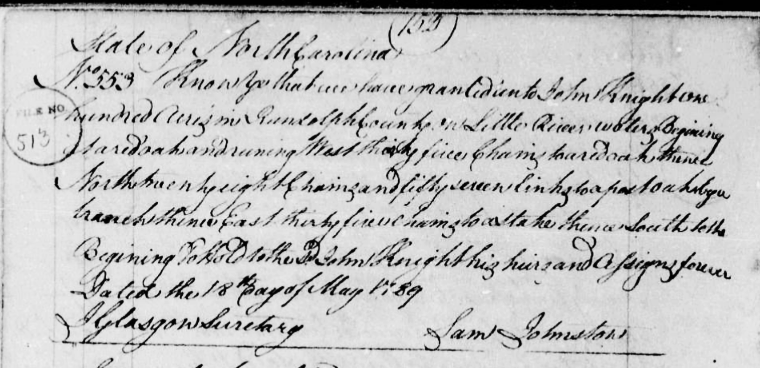 153
State of North Carolina
No. 553 Know Ye that we have granted unto John Knight one
FILE NO.
513
hundred Acres in Randolph County on Little River waters Begining
at a red oak and runing West thirty five Chains to a red oak thence
North twenty eight Chains and fifty seven links to a post oak by a
branch thence East thirty five Chains to a stake thence South to the
Begining To Hold to the Sd John Knight his heirs and Assigns forever
Dated the 18th day of May 1789
J Glasgow Secretary Sam Johnston